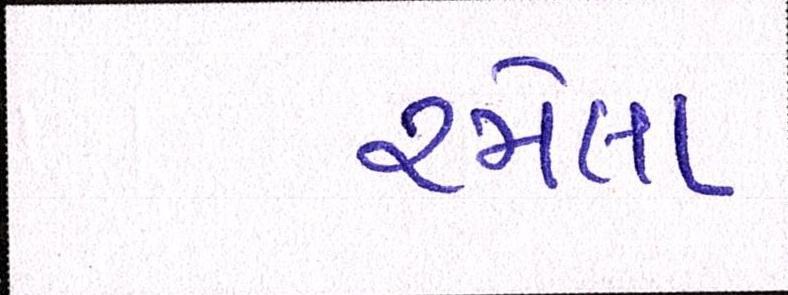 રમેલા